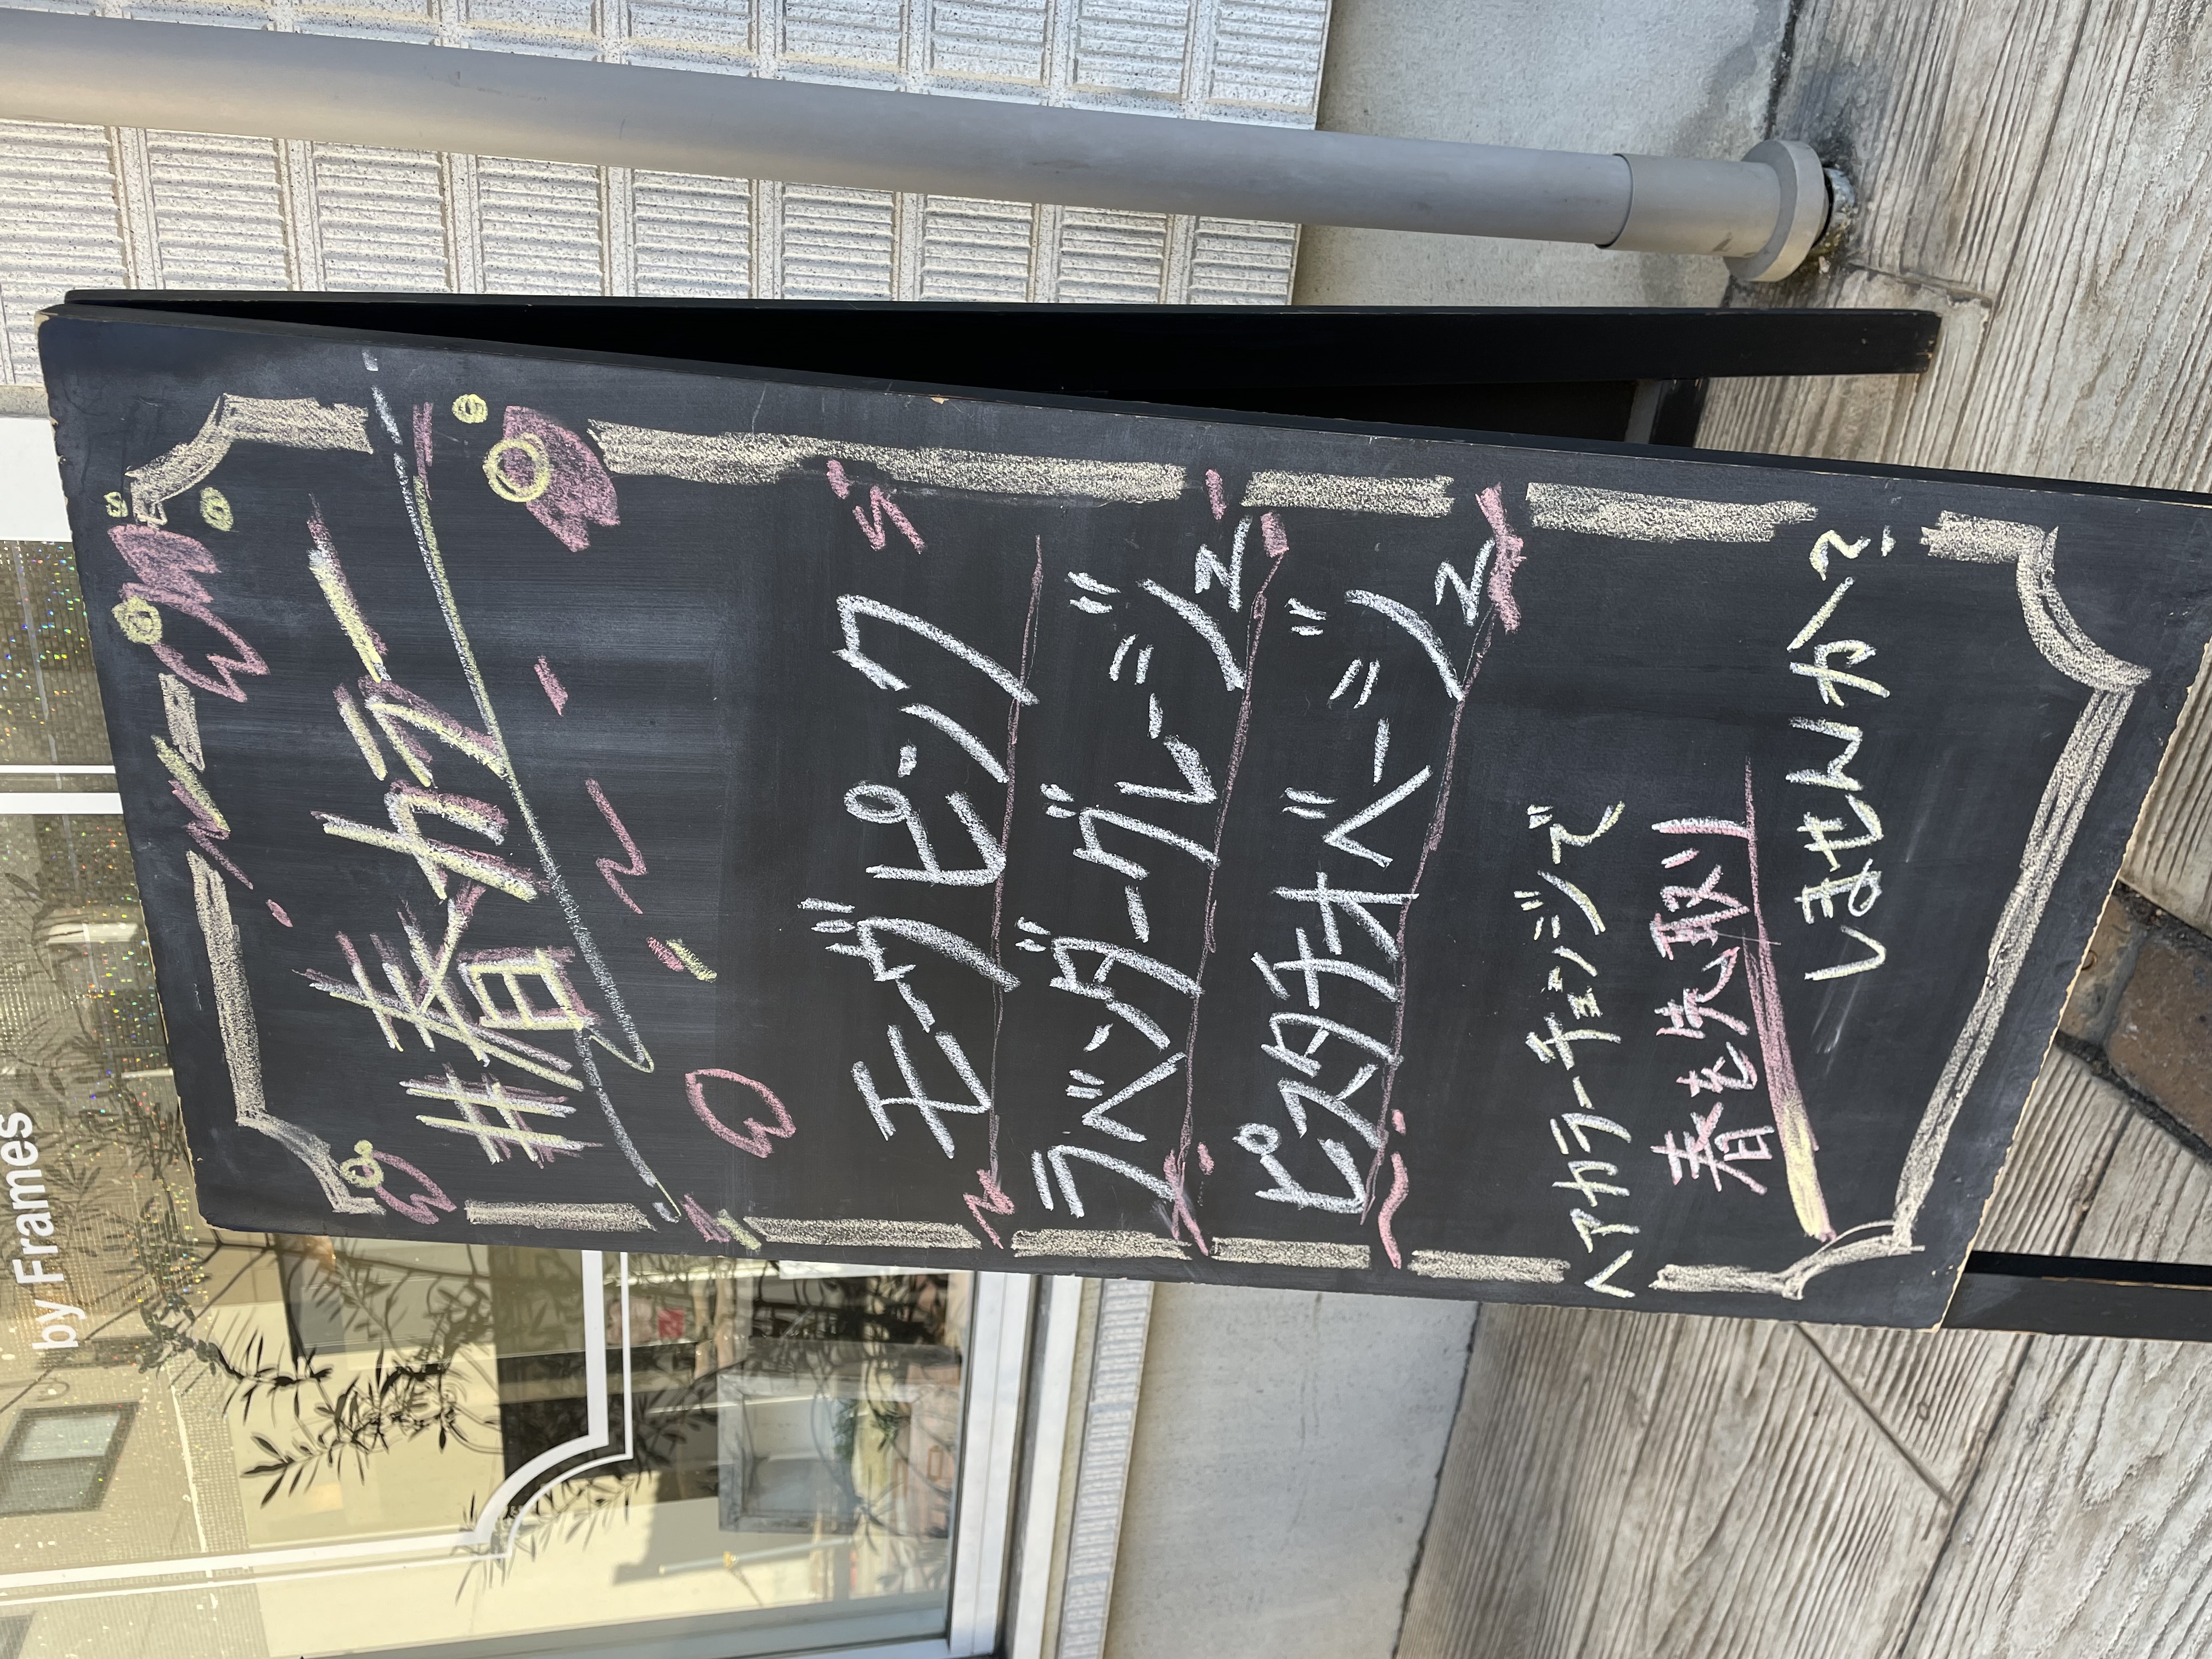 #春カラー
モーヴピンク
ラベンダーグレージュ
ピスタチオベージュ
ヘアカラーチェンジで
春を先取り
しませんか？
by Frames